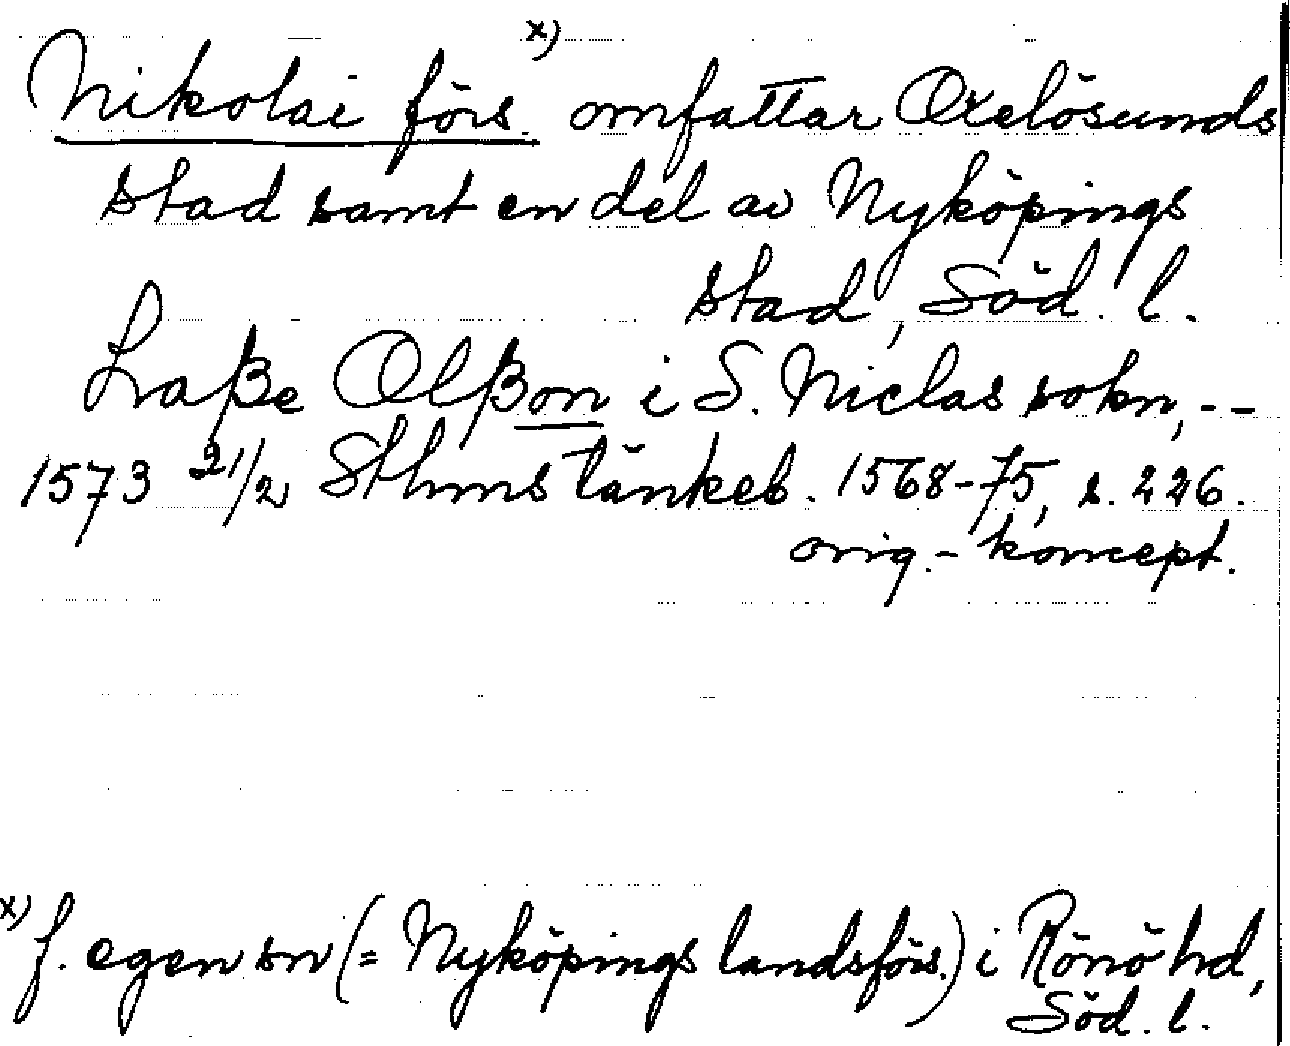 Nikolai förs. x) omfattar Oxelösunds
stad samt en del av Nyköpings
stad, Söd. l.
Laße Olßon i S. Niclas sokn, --
1573 21/2 Sthms tänkeb. 1568-75, s. 226.
orig.- koncept.
x) f. egen sn (= Nyköpings landsförs.) i Rönö hd,
Söd. l.